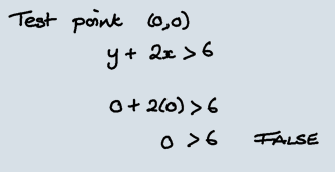 Test point (0,0)
y + 2x > 6
0 + 2(0) > 6
0 > 6 FALSE